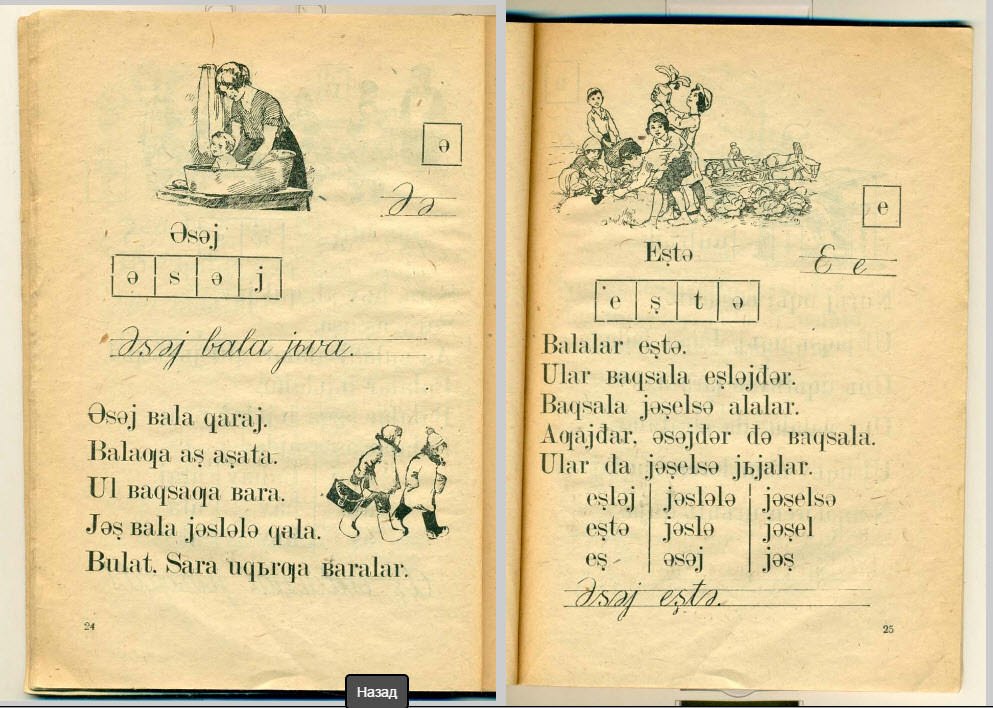 ə
Ə ə
Əsəj
ə s ə j
Əsəj bala jьwa.
Əsəj ʙala qaraj.
Balaƣa aş aşata.
Ul ʙaqsaƣa ʙara.
Jəş ʙala jəslələ qala.
Bulat, Sara uqьrƣa ʙaralar.
24
Назад
e
E e
Eştə
e ş t ə
Balalar eştə.
Ular ʙaqsala eşləjđər.
Baqsala jəşelsə alalar.
Aƣajđar, əsəjđər də ʙaqsala.
Ular da jəşelsə jьjalar.
eşləj | jəslələ | jəşelsə
eştə | jəslə | jəşel
eş | əsəj | jəş
Əsəj eştə.
25